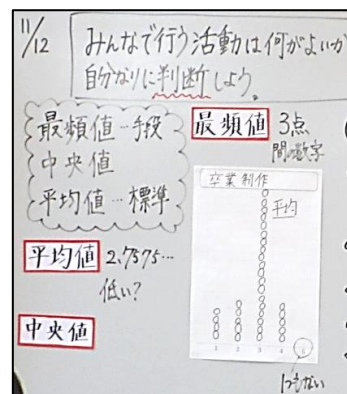 11/12
みんなで行う活動は何がよいか
自分なりに判断しよう。
最頻値…手段
中央値
平均値…標準
最頻値 3点
間の数字
卒業制作
平均
1 2 3 4
平均値 2,7575…
低い?
中央値
1つもない